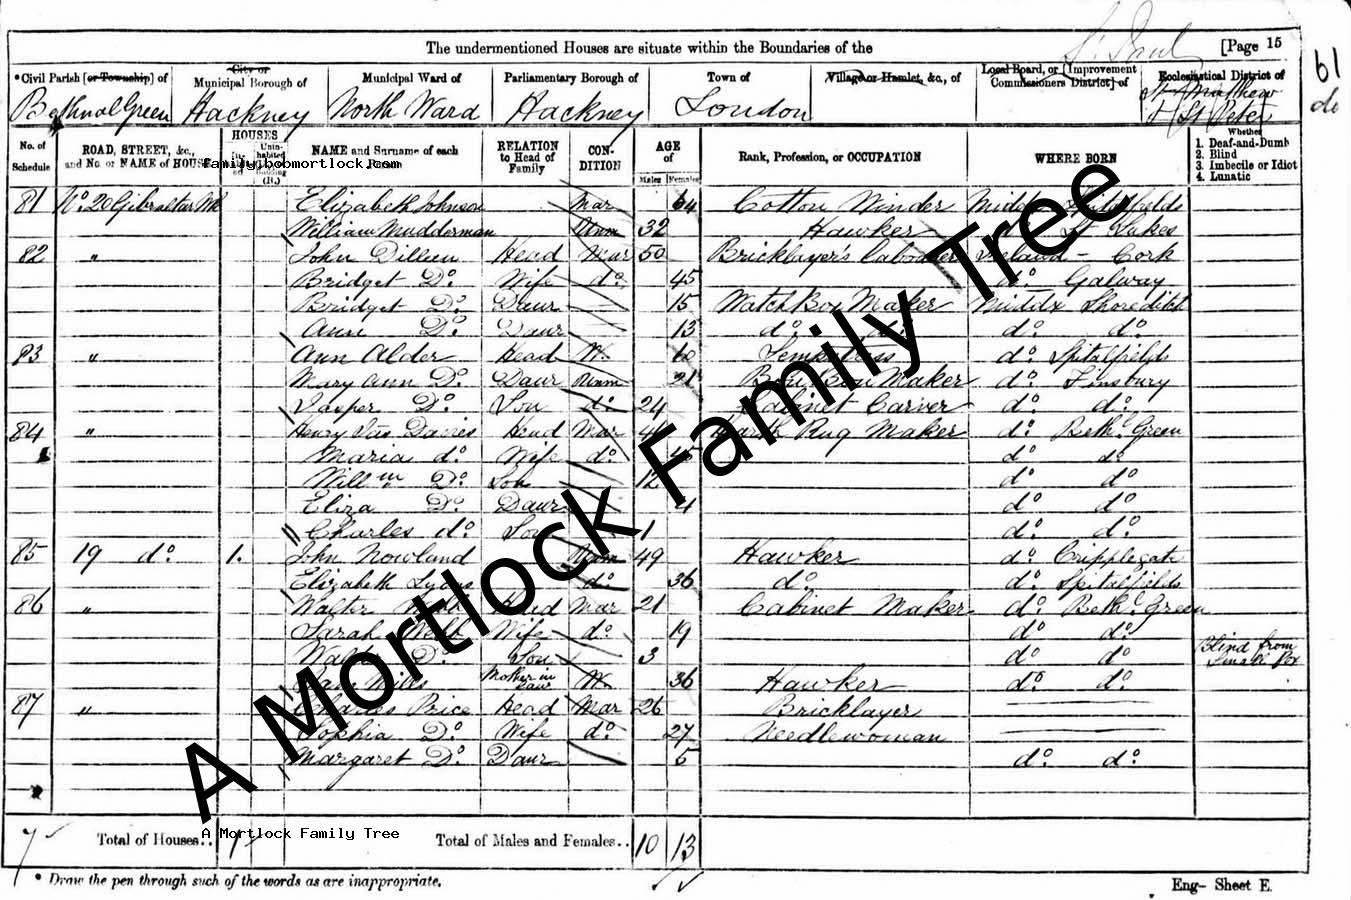 The undermentioned Houses are situate within the Boundaries of the
St Paul
[Page 15
61
do
*Civil Parish [or Township] of
City or Municipal Borough of
Municipal Ward of
Parliamentary Borough of
Town of
Village or Hamlet, &c., of
Local Board, or [Improvement Commissioners District] of
Ecclesiastical District of
Bethnal Green Hackney North Ward Hackney London St Matthew
St Peter
No. of Schedule
ROAD, STREET, &c., and No. or NAME of HOUSE
HOUSES
NAME and Surname of each Person
RELATION to Head of Family
CON-DITION
AGE of
Males Females
Rank, Profession, or OCCUPATION
WHERE BORN
Whether
1. Deaf-and-Dumb
2. Blind
3. Imbecile or Idiot
4. Lunatic
family@bobmortlock.com
81 No. 20 Gibraltar Wk Elizabeth Johnson Mar 64 Cotton Winder Middx Spitalfields
William Mudderman Unm 32 Hawker do St Lukes
82 " John Dilleen Head Mar 50 Bricklayer's Labourer Ireland - Cork
Bridget Do. Wife do. 45 do. Galway
Bridget Do. Daur 15 Match Box Maker Middx Shoreditch
Anne Do. Daur 13 do. do. do. do.
83 " Ann Alder Head W. 60 Sempstress do. Spitalfields
Mary Ann Do. Daur Unm 21 Maker do. Finsbury
Jasper Do. Son do. 24 Cabinet Carver do. do.
84 " Henry Jas Davies Head Mar Hearth Rug Maker do. Beth. Green
Maria do. Wife do. do. do.
Willm Do. Son 12 do do
Eliza Do. Daur 4 do do
Charles do. Son 1 do. do.
85 19 do. 1. John Nowland Unm 49 Hawker do. Cripplegate
Elizabeth Lyons do. 36 do. do. Spitalfields
86 " Walter Webb Head Mar 21 Cabinet Maker do. Beth. Green
Sarah Webb Wife do. 19 do. do.
Walter D. Son 3 do do. Blind from Small Pox
Mills Mother in Law W 36 Hawker do. do.
87 " Charles Price Head Mar 26 Bricklayer
Sophia Do. Wife do. 27 Needlewoman
Margaret Do. Daur 5 do. do.
7 Total of Houses.. 1 Total of Males and Females.. 10 13
A Mortlock Family Tree
A Mortlock Family Tree
* Draw the pen through such of the words as are inappropriate.
Eng- Sheet E.